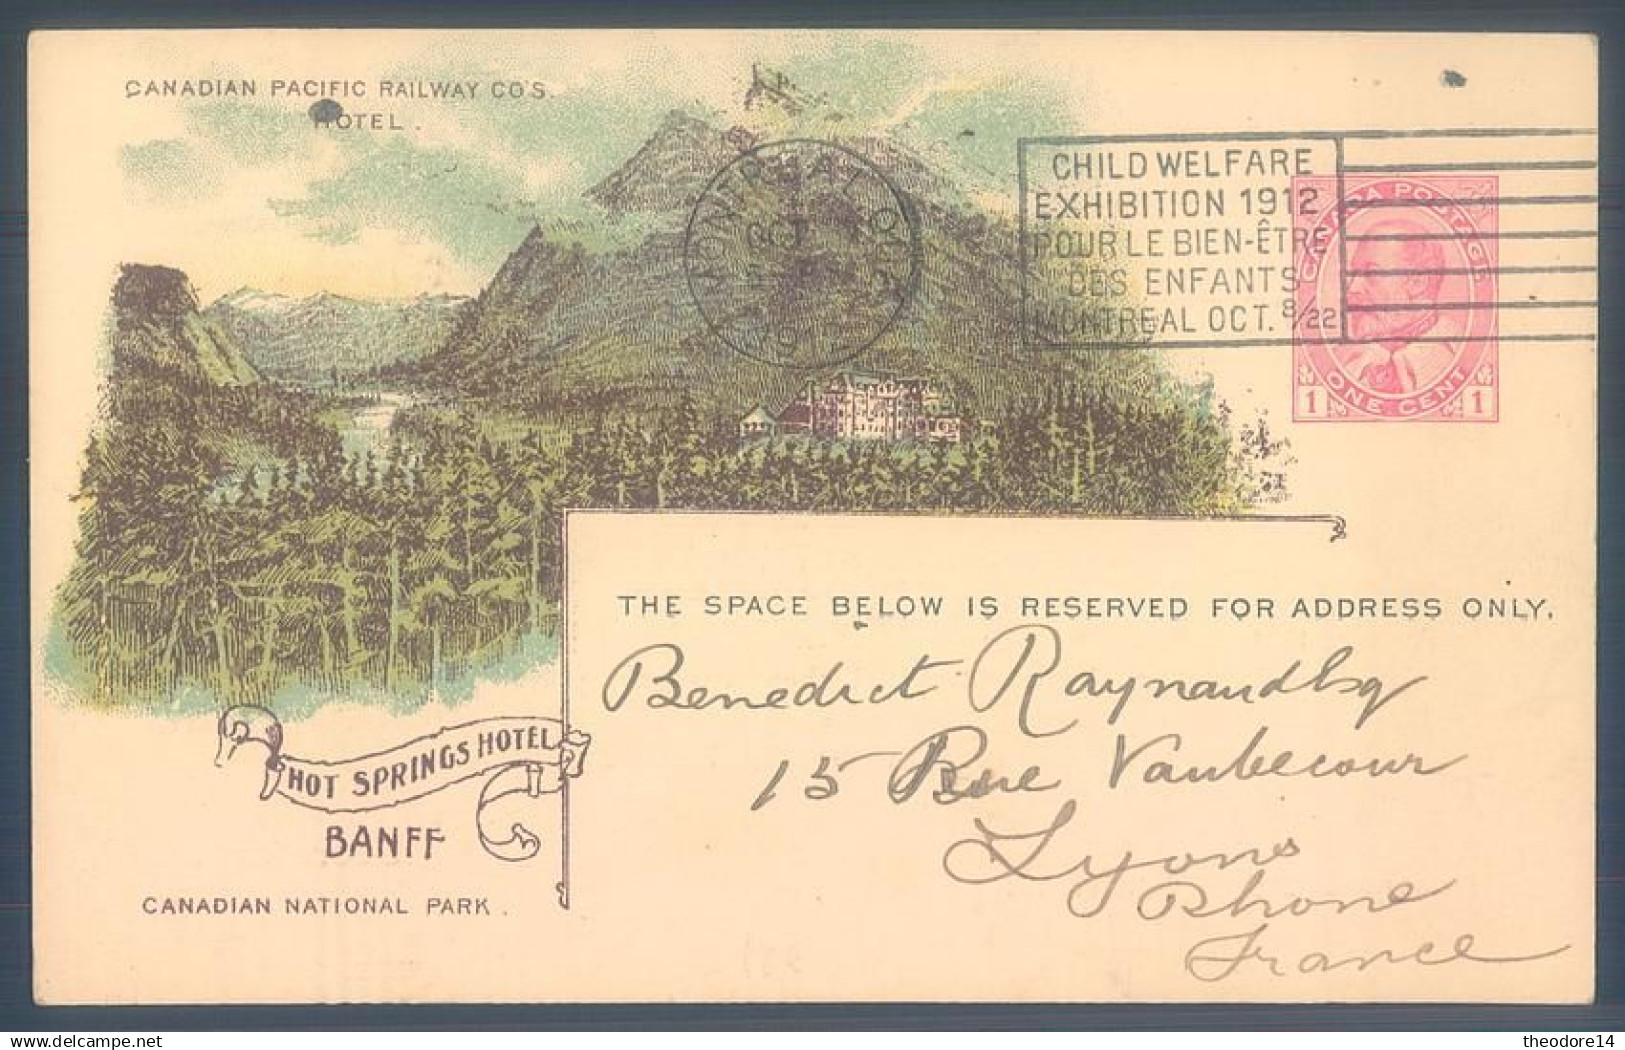 CANADIAN PACIFIC RAILWAY CO'S.
HOTEL.
MONTREAL QUE.
OCT
CHILD WELFARE
EXHIBITION 1912
POUR LE BIEN-ÊTRE
DES ENFANTS
MONTREAL OCT. 8/22
CANADA POSTAGE
1 ONE CENT 1
THE SPACE BELOW IS RESERVED FOR ADDRESS ONLY.
Benedict Raynaud Esq
15 Rue Vaubecour
Lyons
Rhone
France
HOT SPRINGS HOTEL
BANFF
CANADIAN NATIONAL PARK.
theodore14